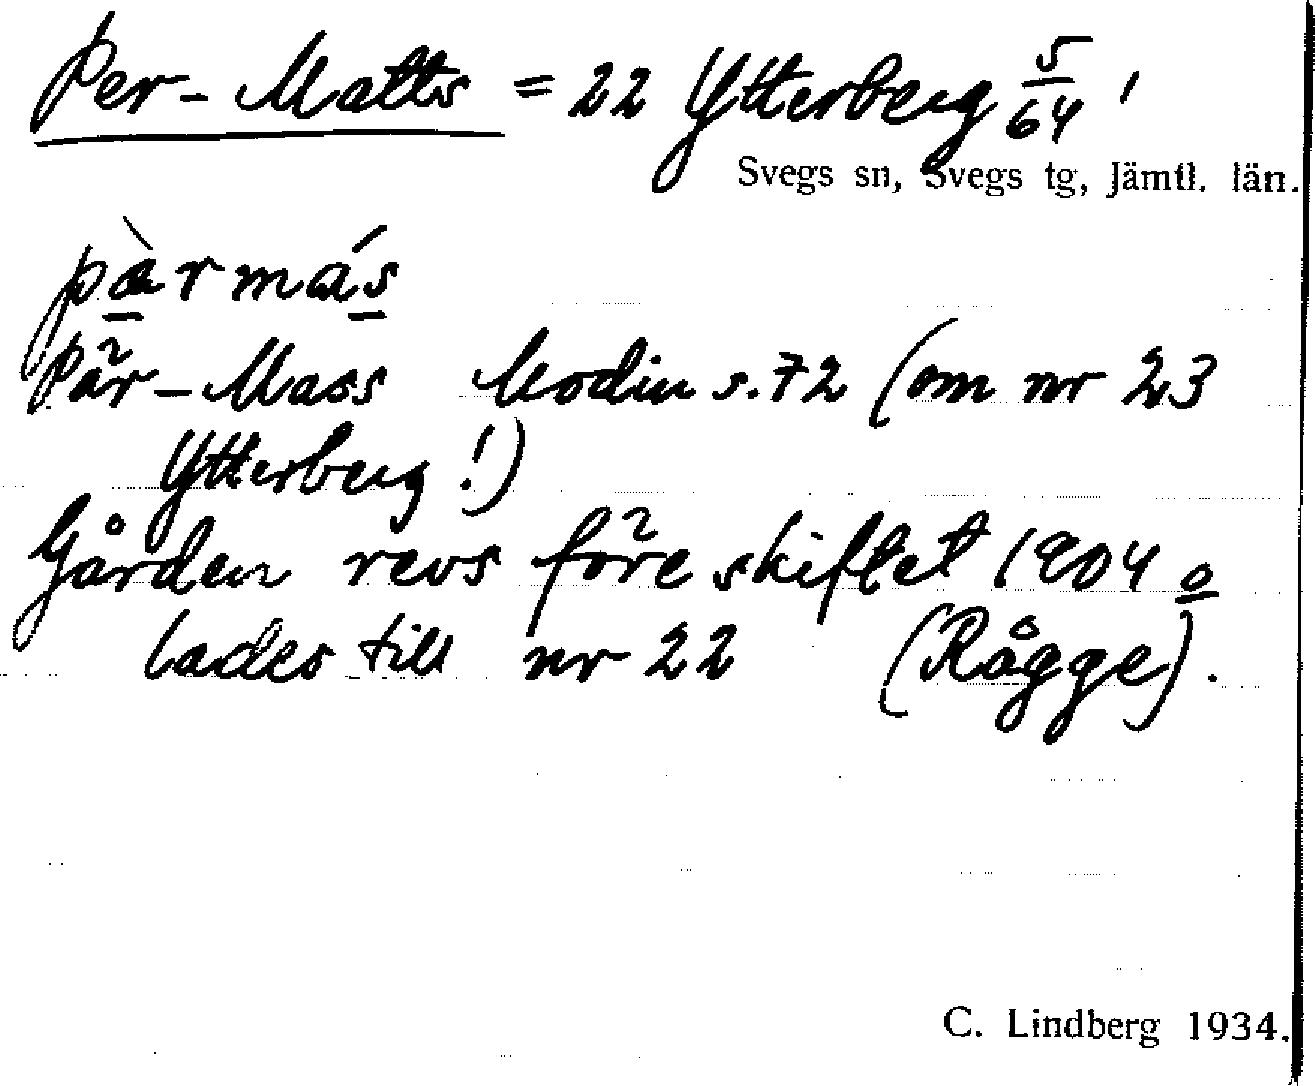 Per-Matts = 22 Ytterberg 5/64 '
Svegs sn, Svegs tg, Jämtl. län.
pæ̀rmás
Pär-Mass Modin s. 72 (om nr 23
Ytterberg!)
Gården revs före skiftet 1904 o
lades till nr 22 (Rågge).
C. Lindberg 1934.